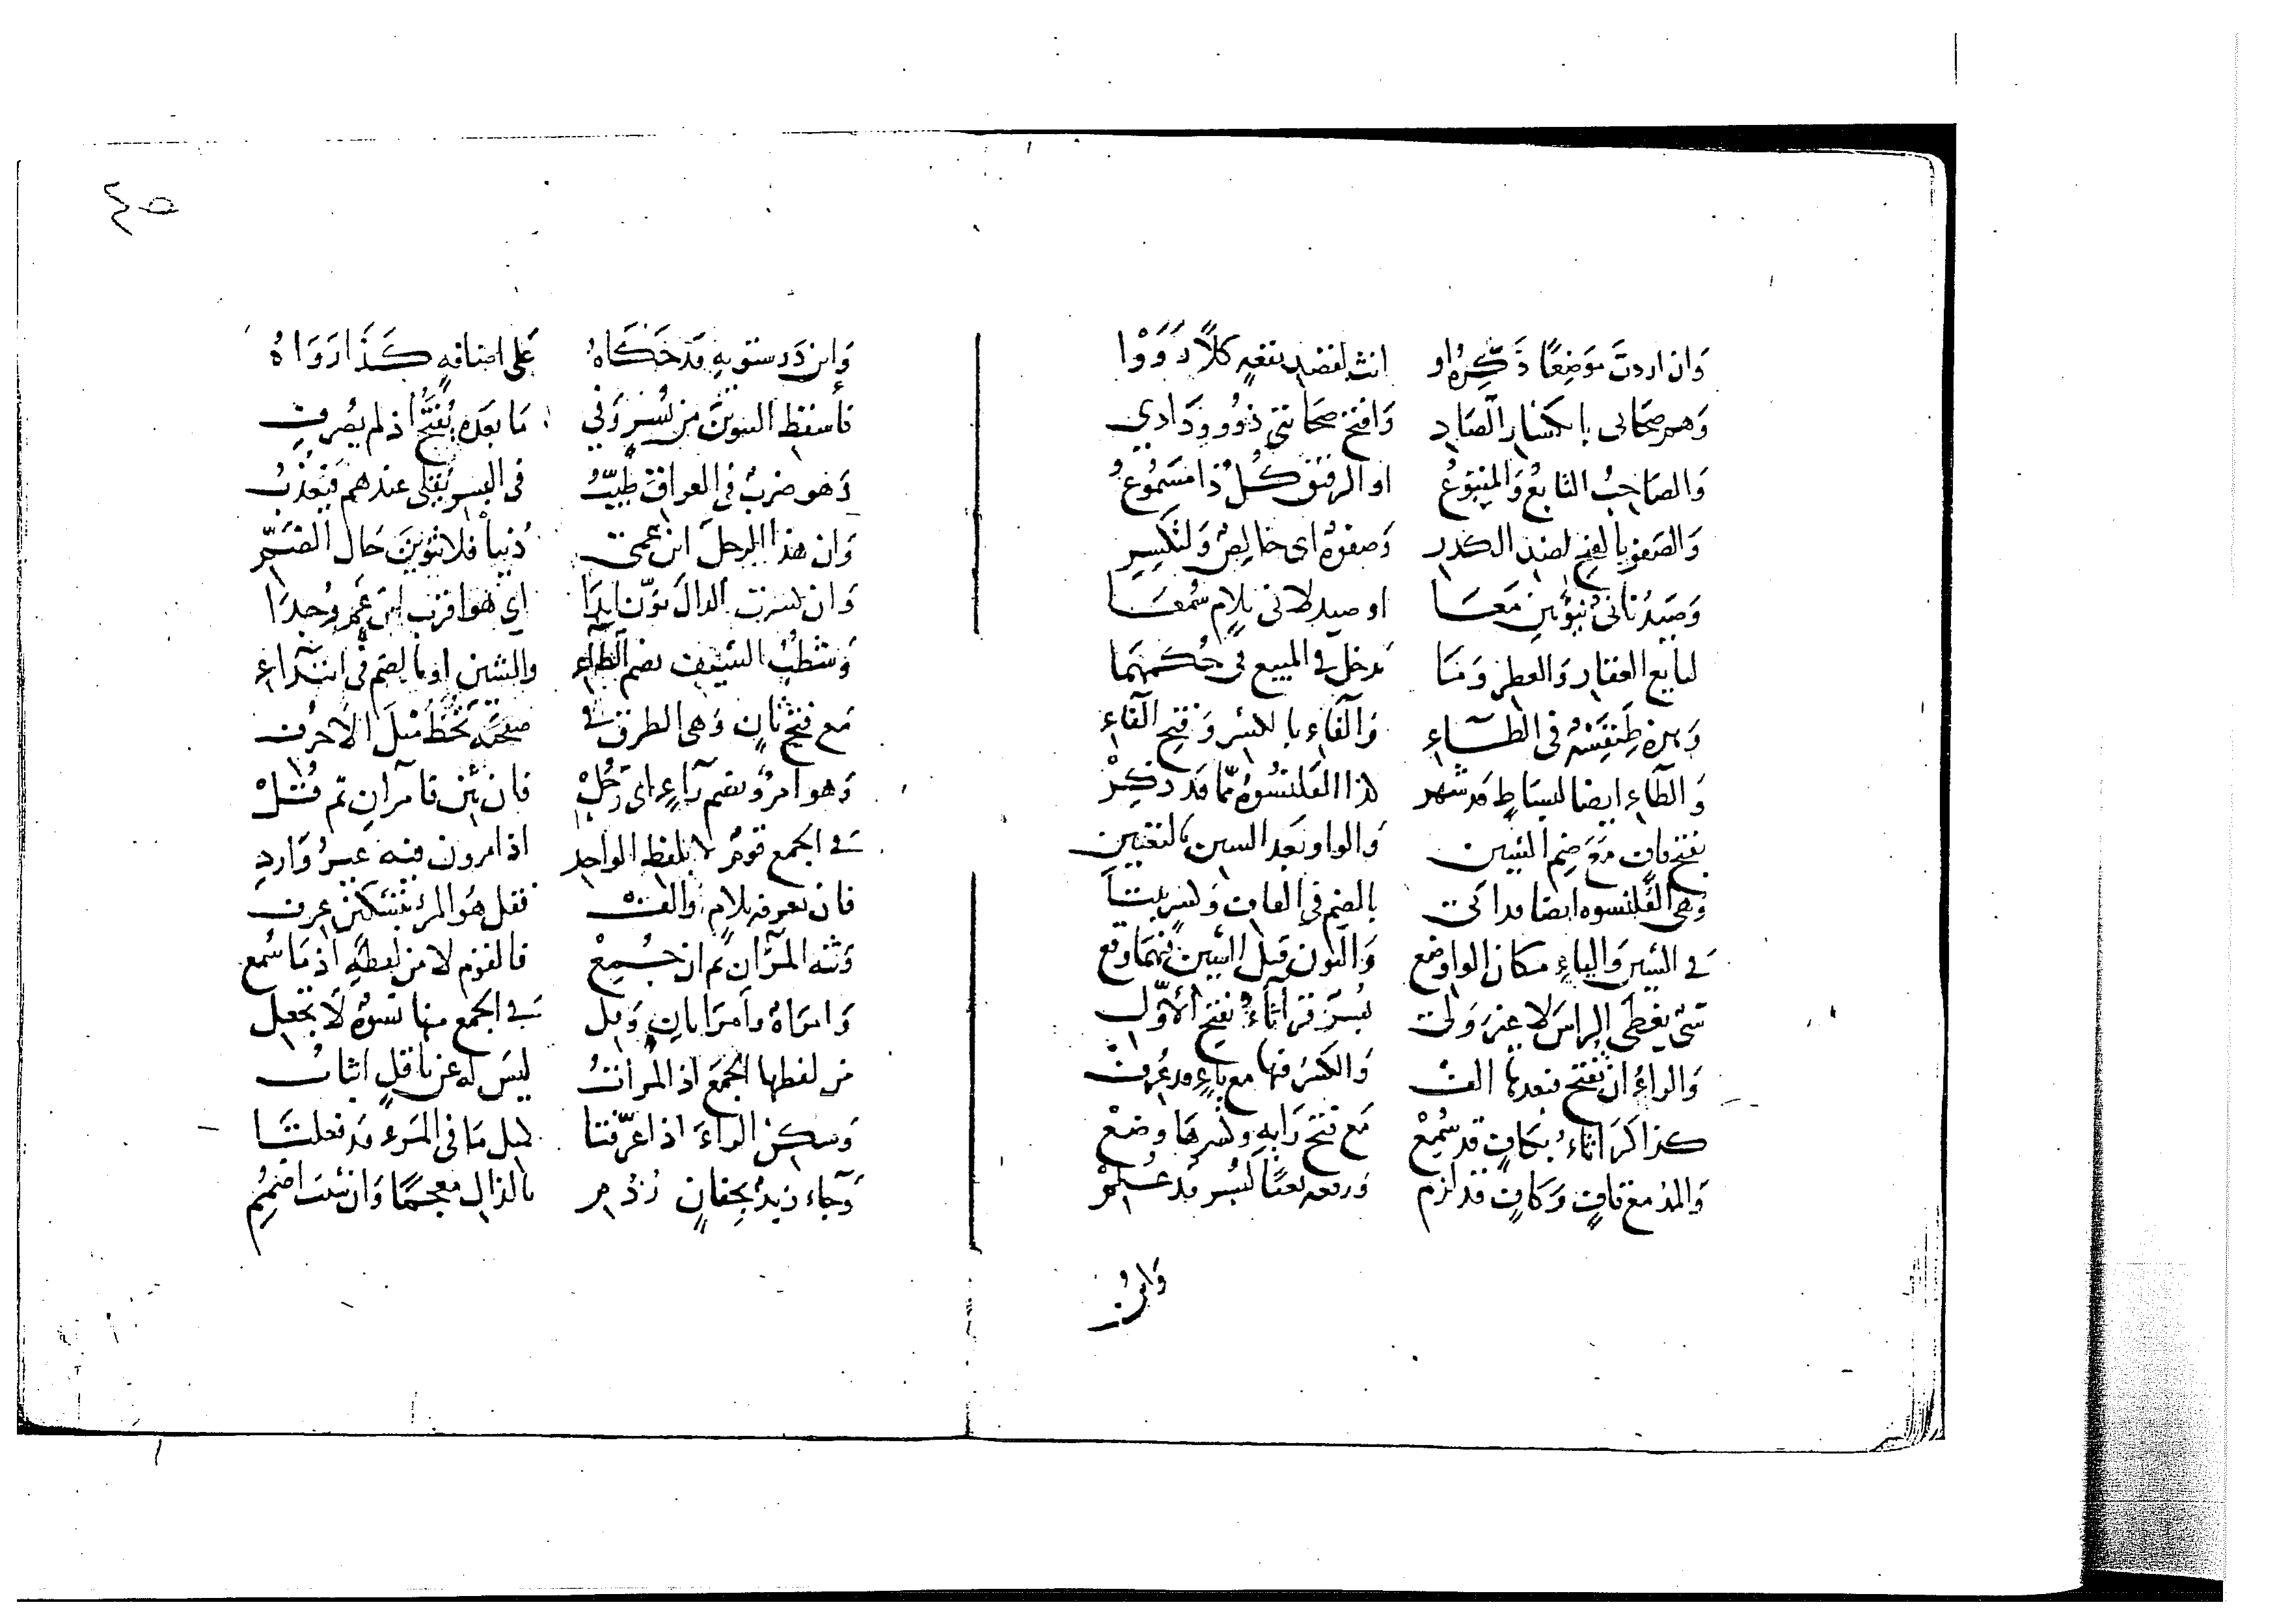 وَان اردتَ مَوضِعًا ذَكِّرهُ او انث لقصد بقعه كلاًّ رَوَوْا
وَهم صحَابى بانكسَار الصَادِ وَافتح صحَابتى ذوُو وِدَادي
وَالصَاحِبُ التابعُ وَالمتبوُعُ او الرفيق كُلُّ ذا مسَمُوعُ
وَالصَفو بالفتح لضد الكدر وَصفوة اى خالِصٌ وَلتكسِرِ
وَصَيْدَنانىٌّ بنوُنين مَعَا او صيدلانى بلامٍ سُمعَا
لبايع العقار وَالعطر وَمَا يَدخل في المبيع في حُكمهمَا
وَهذه طِنفِسَةٌ في الطَّاءِ وَالفَاءِ بالكسرِ وَفتح الفَاءِ
وَالطَاءِ ايضا لبسَاطٍ قد شهر كذا القلنسُوة ممّا قد ذكِرْ
بفتح قافٍ مَعَ ضمِ السِّين وَالواو بَعد السين
وَهى القلنسوه ايضا قد اتى بالضم في القاف وَكسرٍ ثبتَا
في السِّين وَاليَاءِ مكان الواو ضع وَالنون قبل السِّين فيهمَا وَقع
شىٌ يغطى الراسَ لا غير وَلى بُسرٌ قَرَاثَاءُ بفتح الأوّلِ
وَالراءُ ان تفتح فبعدها الف وَالكسر فيها مع يَاءٍ قد عُرِفْ
كذا كَرَاثاءُ بكافٍ قد سُمِعْ مَع فتح رَايه وَكسرهَا وضعْ
وَالمدُّ مع قافٍ وَكافٍ قد لزم وَرفعه نعتًا لبُسر قد عُلِمْ
وَابن
وَابن دَرستويهِ قد حَكَاهُ عَلى اضافةٍ كَذَا رَوَاهُ
فأسقط التنوين من بُسرٍ وَفي مَا بَعده يُفتَحُ اذ لم يصُرفِ
وَهو ضربٌ في العراق طيّبُ في البسر يُقلى عندهم فيَعذبُ
وَان هذا الرجل ابن عمى دُنيا فلا تنوين حَال الضَّمِّ
وَان كسرت الدالَ نوّن ابدَا اي هو اقرب ابن عَمٍ وُجِدَا
وَشطبُ السَّيف بضم الطَّاءِ والشين او بالضم في ابتدَاءِ
مَع فتح ثانٍ وَهى الطرق في صفحته تخُطُّ مثلَ الاحرُفِ
وَهو امرؤ بضم رَاءٍ اى رَجُلْ فان تثن قامرآنِ ثم قُلْ
في الجمع قومٌ لا بلفظِ الواحِدِ اذ امرون فيه غيرُ وَاردِ
فان تعرفه بلامٍ وَالف فقل هُو المرءُ بتسكين عرف
وَثنه المَرآن ثم ان جُمِعْ فالقوم لا من لفظهِ اذ مَا سُمع
وَامرَاة وَامرَاتانِ وَقل في الجمع منها نسوَةٌ لا تجعل
من لفظها الجمعَ اذ المرآتُ ليسَ له عن ناقلٍ اثباتُ
وَسكن الراءَ اذا عرّفتَا كمثل مَا في المَرءِ قد فعلتَا
وَجَاء زيدٌ بجِفانٍ رُذُمِ بالذال معجمًا وَان شئت اضمُمِ